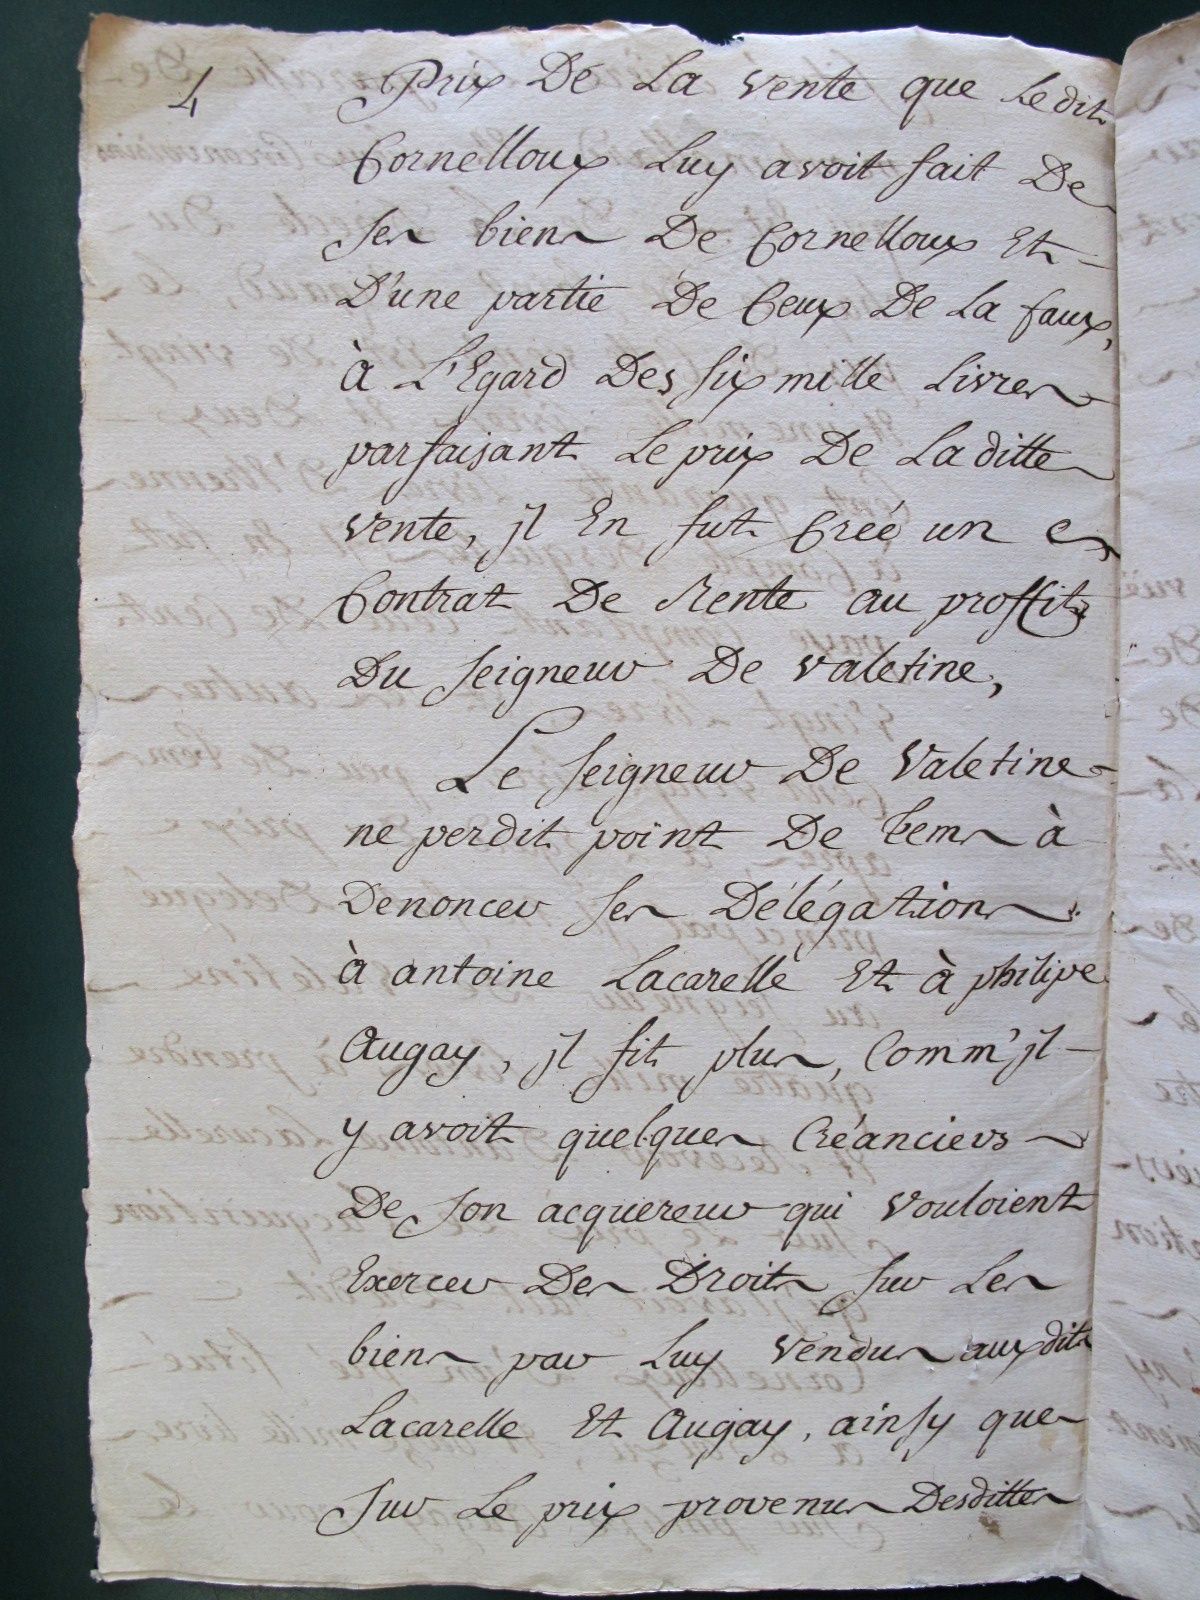 4
Prix De La vente que Ledit
Cornelloux Luy avoit fait De
ses biens De Cornelloux Et
D'une partie De Ceux De La faux,
à L'Egard Des six mille Livres
parfaisant Le prix De La ditte
vente, jl En fut Créé un
Contrat De Rente au proffit
Du seigneur De valetine,
Le seigneur De Valetine
ne perdit point De tems à
Denoncer ses Délégations
à antoine Lacarelle Et à philipe
Augay, jl fit plus, Comm'jl
y avoit quelques Créanciers
De son acquereur qui vouloient
Exercer Des Droits sur Les
biens par Luy vendus auxdits
Lacarelle Et Augay, ainsy que
sur Le prix provenus Desdittes